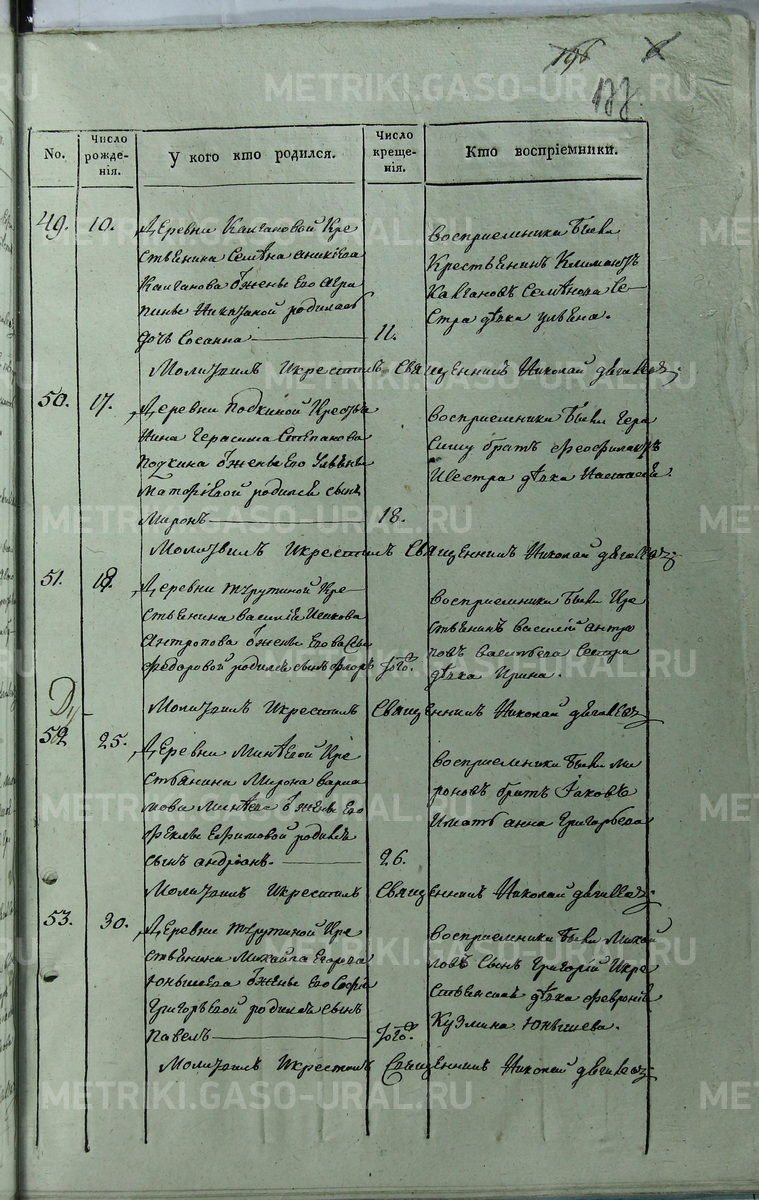 196
6
177.
No.
Число рожде-нія.
У кого кто родился.
Число крещe-нія.
Кто воспріемники.
49. 10. Деревни Калгановой Кре
ственина Семѣна Аникіева
Калганова ѿжены Его Агра
пины родилась
дочь Сосанна 11.
Восприемники Были
Крестьенинъ
Калгановъ Семѣнова Се-
стра дѣвка Ульена.
Молитвилъ Икрестилъ Священникъ Николай
50. 17. Деревни Крестья
нина Герасима Степанова
ѿжены Его Ульены
родился сынъ
Миронъ 18.
Восприемники Были Гера
симу братъ Феофилактъ
Исестра дѣвка
Молитвилъ Икрестилъ Священникъ Николай
51. 18. Деревни Кре
ственина Василія Исакова
Антропова ѿжены Его
Федоровой родился сынъ Флоръ тогож
Восприемники Были Кре
ственинъ Василій Антро
повъ Сестра
дѣвка Ирина.
Молитвилъ Икрестилъ Священникъ Николай
52. 25. Деревни Минѣевой Кре
стьянина Мирона Варла
мова Минѣева ѿжены Его
Феклы Ефимовой родился
сынъ Андріанъ. 26.
Восприемники Были Ми
роновъ братъ Іаковъ
Имать Анна Григорьева
Молитвилъ Икрестилъ Священникъ Николай
53. 30. Деревни Кре
стьенина Михайла Егорова
Юнышева ѿжены Его Софьи
Григорьевой родился сынъ
Павелъ тогож
Восприемники Были Михай
ловъ Сынъ Григорій Икре
дѣвка Февронія
Кузмина Юнышева.
Молитвилъ Икрестилъ Священникъ Николай
METRIKI.GASO-URAL.RU